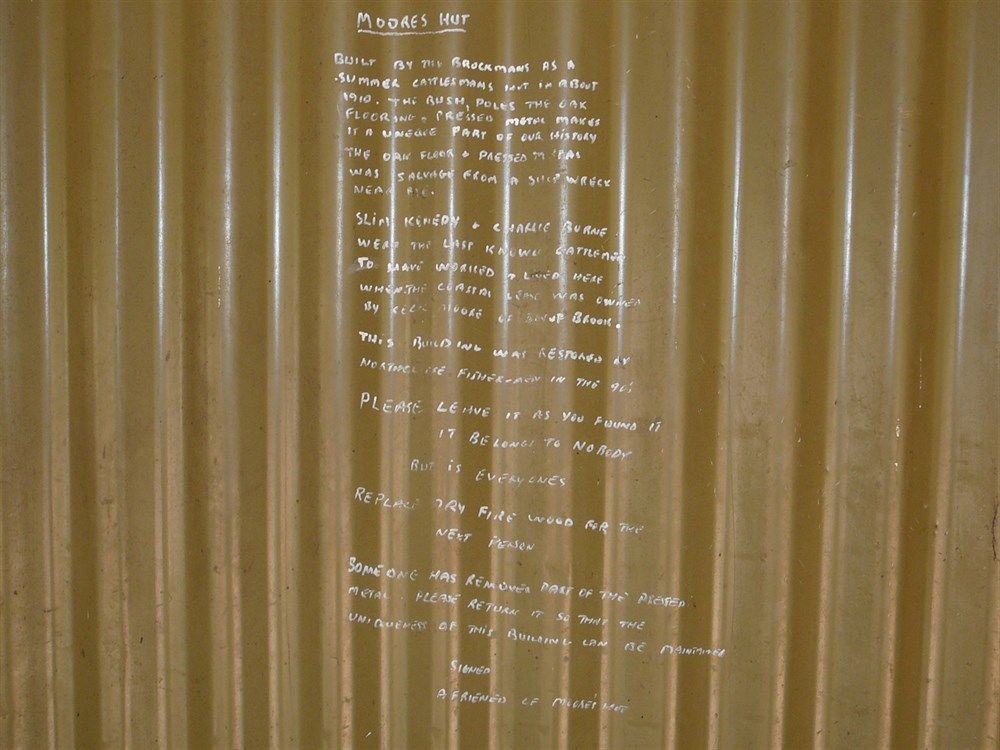 MOORES HUT
BUILT BY THE BROCKMANS AS A
SUMMER CATTLESMANS HUT IN ABOUT
1910. THE BUSH, POLES THE OAK
FLOORING + PRESSED METAL MAKES
IT A UNEQUE PART OF OUR HISTORY
THE OAK FLOOR & PRESSED
WAS SALVAGE FROM A SHIP WRECK
NEAR
SLIM KENEDY + CHARLIE BURNE.
WERE THE LAST KNOWN CATTLEMEN
TO HAVE WORKED & LIVED HERE
WHEN THE COASTAL WAS OWNED
BY MOORE OF BROOK.
THIS BUILDING WAS RESTORED BY
FISHER-MEN IN THE 90's
PLEASE LEAVE IT AS YOU FOUND IT
IT BELONGS TO NOBODY
BUT IS EVERYONES
REPLACE DRY FIRE WOOD FOR THE
NEXT PERSON
SOMEONE HAS REMOVED PART OF THE PRESSED
METAL. PLEASE RETURN IT SO THAT THE
UNIQUENESS OF THIS BUILDING CAN BE
SIGNED
A FRIENED OF HUT